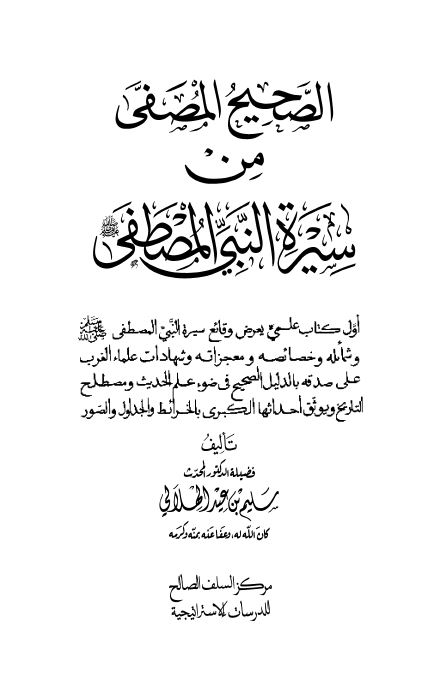 الصَّحِيحُ المُصَفَّى
مِنْ
سِيْرَةِ النَّبِيِّ المُصْطَفَى ﷺ
أوّل كتاب علمي يعرض وقائع سيرة النَّبيّ المصطفى ﷺ
وشمائله وخصائصه ومعجزاته وشهادات علماء الغرب
على صدقه بالدليل الصحيح في ضوء علم الحديث ومصطلح
التاريخ ويوثّق أحداثها الكبرى بالخرائط والجداول والصّور
تَأليفُ
فضيلة الدكتور المحدّث
سَليم بن عيد الهلالي
كانَ اللّه له، وعفا عنه بمنّه وكرمه
مركز السلف الصالح
للدرسات الاستراتيجية